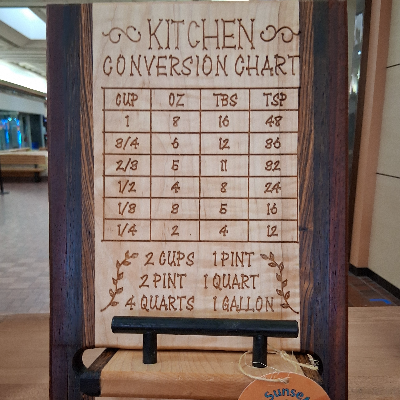 KITCHEN
CONVERSION CHART
CUP OZ TBS TSP
1 8 16 48
3/4 6 12 36
2/3 5 11 32
1/2 4 8 24
1/3 3 5 16
1/4 2 4 12
2 CUPS 1 PINT
2 PINT 1 QUART
4 QUARTS 1 GALLON